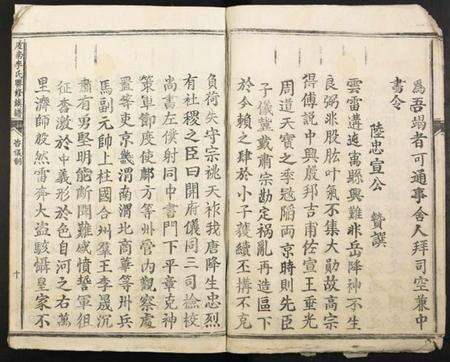 爲吾堝者可通事舍人拜司空兼中
書令
陸忠宣公 贊撰
雲雷遘迍寓縣興難非岳降神不生
良弼非股肱叶氣不集大勛故高宗
得傅説中興殷邦吉甫佐宣王重光
周道天寳之季兇䧟兩京時則先臣
子儀黨戴肅宗勘定禍亂再造區下
於今賴之肆於小子獲纘丕搆不克
南李氏聯修族譜
誥制
十
負荷失守宗祧天祚我唐降生忠烈
有社稷之臣曰開府儀同三司撿校
尚書左僕射同中書門下平章克神
策軍節度使鄜方等州管内觀察處
置等使京畿渭南渭北商華等州兵
馬副元帥上柱國合州郡王李晟沉
肅有男堅明能斷聞難感憤誓軍徂
征沓激於中義形於色自河之右萬
里濟師殷然雷奔大盗駭懾皇家不